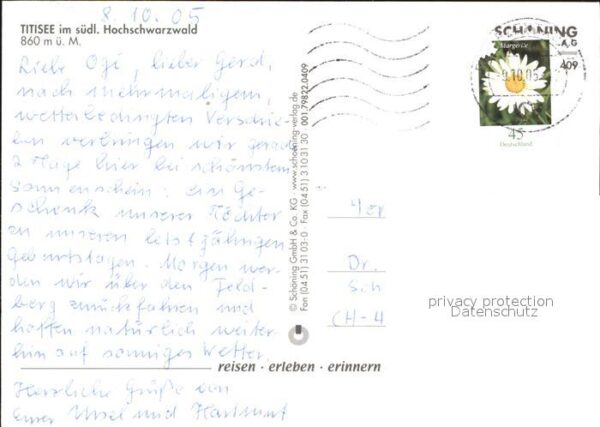 8.10.05
TITISEE im südl. Hochschwarzwald
860 m ü. M.
Liebe Ogi, lieber Gerd,
nach mehrmaligem,
wetterbedingten Verschie-
ben verbringen wir gerade
2 Tage hier bei schönstem
Sonnenschein: ein Ge-
schenk unserer Töchter
zu unseren letztjährigen
Geburtstagen. Morgen wer-
den wir über den Feld-
berg zurückfahren und
hoffen natürlich weiter-
hin auf sonniges Wetter.
Herzliche Grüße von
Eurer Ursel und Hartmut
© Schöning GmbH & Co. KG · www.schoening-verlag.de
Fon (04 51) 31 03-0 · Fax (04 51) 3 10 31 30 001.79822.0409
SCHÖNING
A.G
409
Margerite
10.05
45
Deutschland
Dr.
Sch
CH-4
privacy protection
Datenschutz
reisen · erleben · erinnern